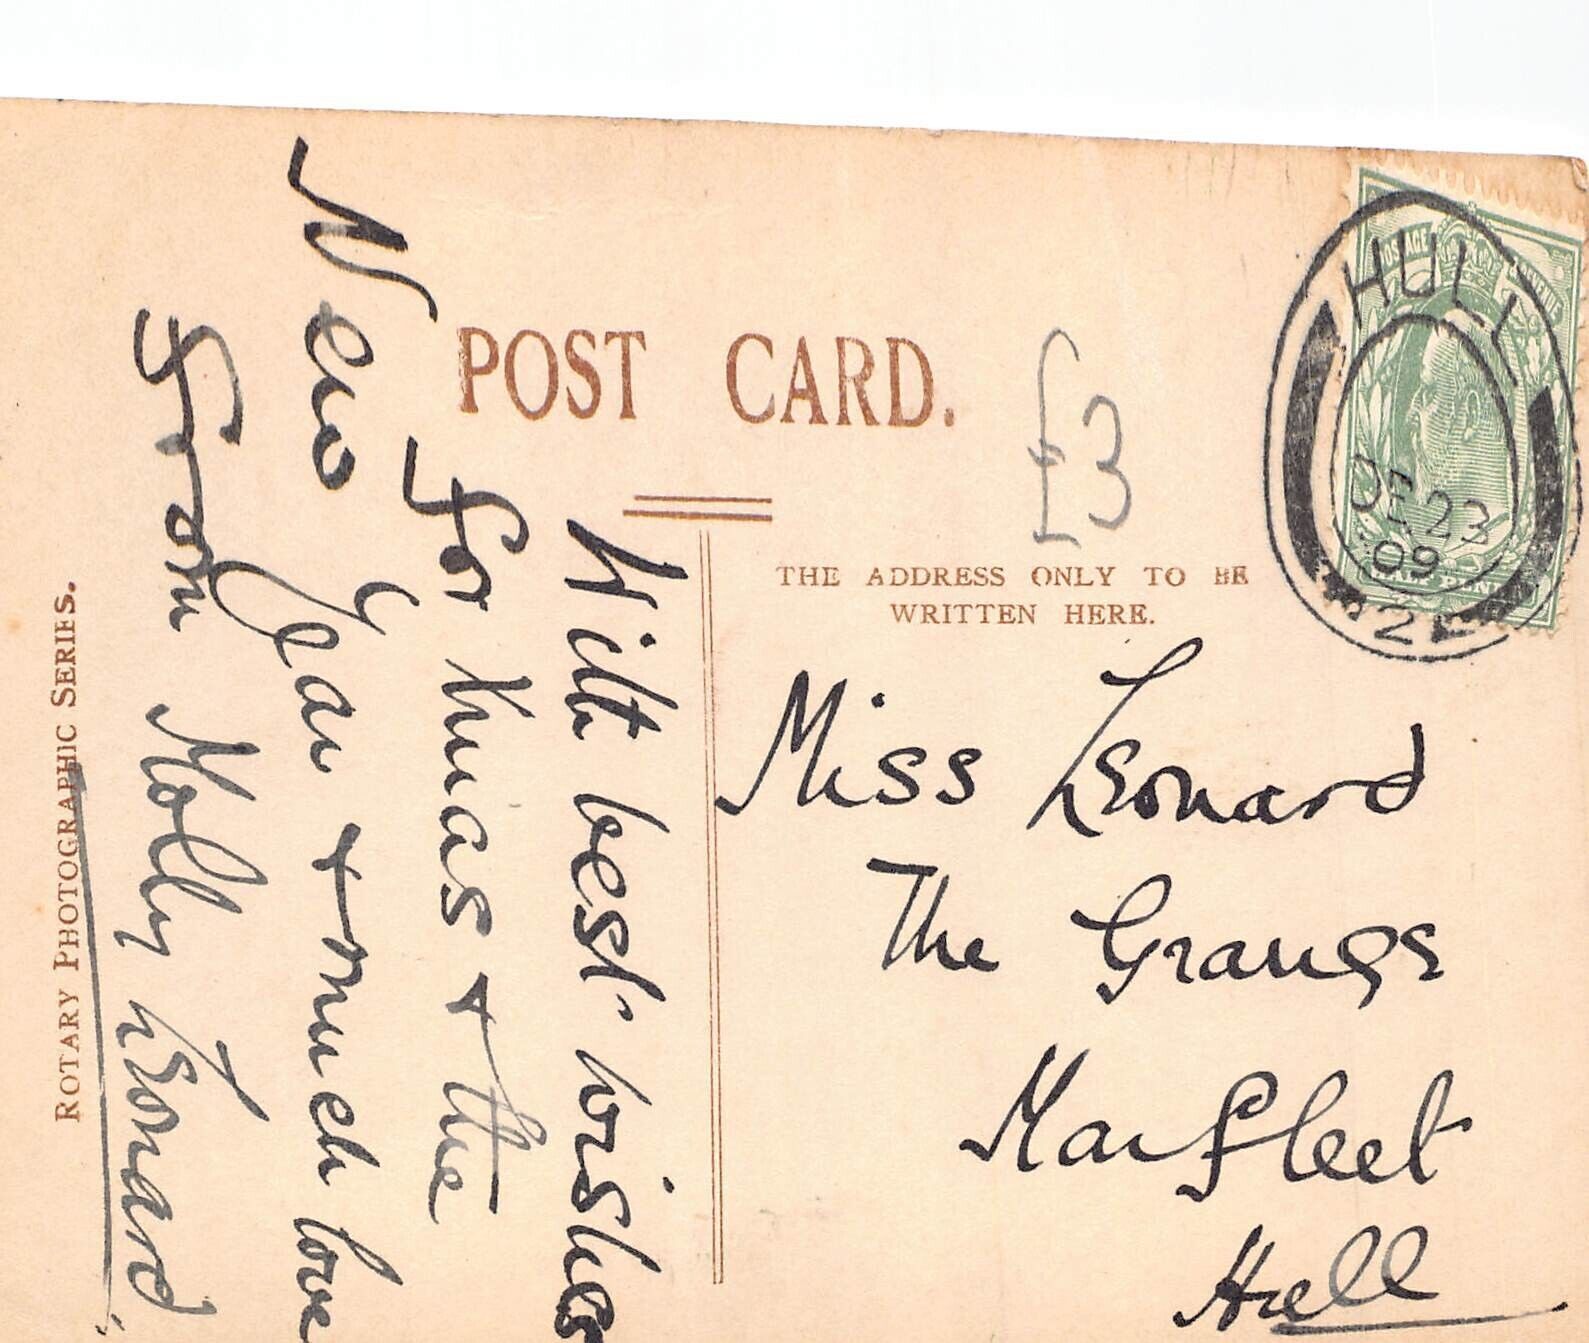 POST CARD.
THE ADDRESS ONLY TO BE
WRITTEN HERE.
£3
HULL
DE 23
09
POSTAGE
HALF PENNY
Miss Leonard
The Grange
Marfleet
Hull
With best wishes
for Xmas & the
New Year & much love
From Molly Leonard.
ROTARY PHOTOGRAPHIC SERIES.